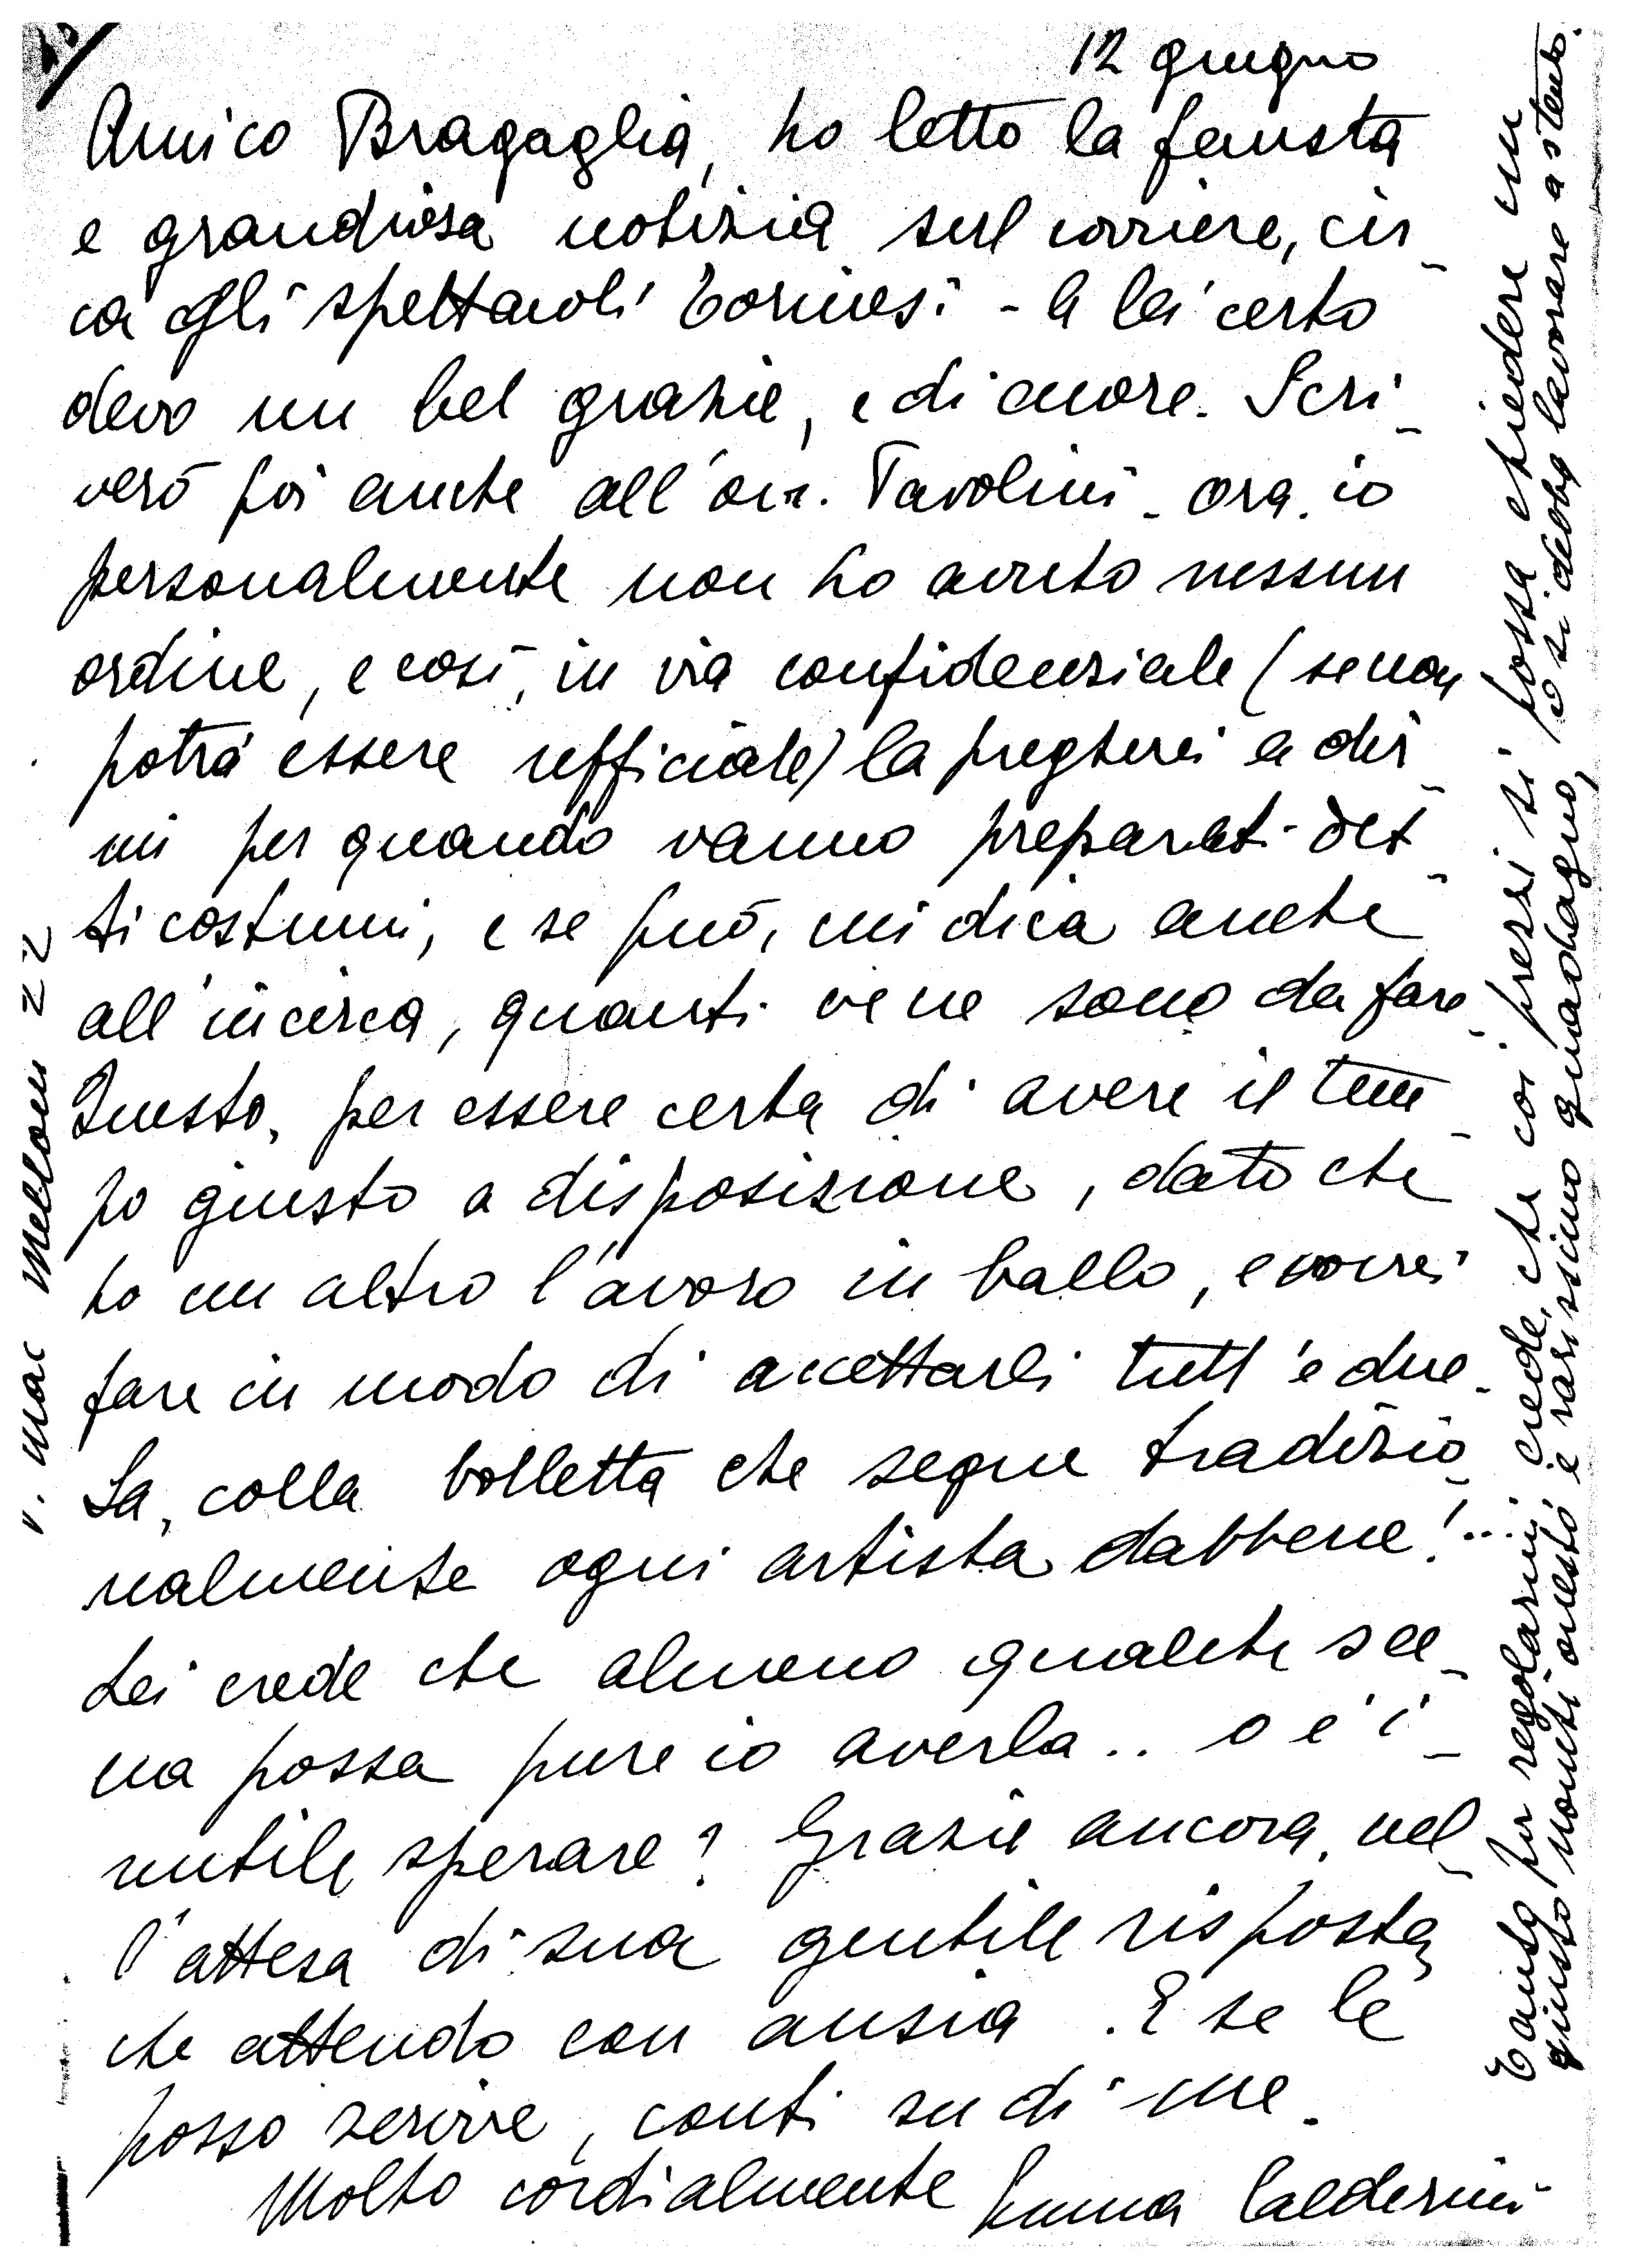 12 giugno
Amico Bragaglia, ho letto la fausta
e grandiosa notizia sul corriere, cir_
ca gli spettacoli torinesi - A lei certo
devo un bel grazie, e di cuore. Scri_
verò poi anche all'on. Pavolini - ora io
personalmente non ho avuto nessun
ordine, e così, in via confidenziale (se non
potrà essere ufficiale) la pregherei a dir_
mi per quando vanno preparati det_
ti costumi, e se può, mi dica anche
all'incirca, quanti ve ne sono da fare_
Questo, per essere certa di avere il tem_
po giusto a disposizione, dato che
ho un altro lavoro in ballo, e vorrei
fare in modo di accettarli tutt'e due_
Sa, colla bolletta che segue tradizio_
nalmente ogni artista dabbene!...
Lei crede che almeno qualche sce_
na possa pure io averla.. o è i_
nutile sperare? Grazie ancora, nel_
l'attesa di sua gentile risposta,
che attendo con ansia. E se le
posso servire, conti su di me.
Molto cordialmente Emma Calderini
Tanto per regolarmi, crede, che coi prezzi si possa chiedere un
giusto nonché onesto e rarissimo guadagno, o si debba lavorare a stento.
v. Mac Mellon 22